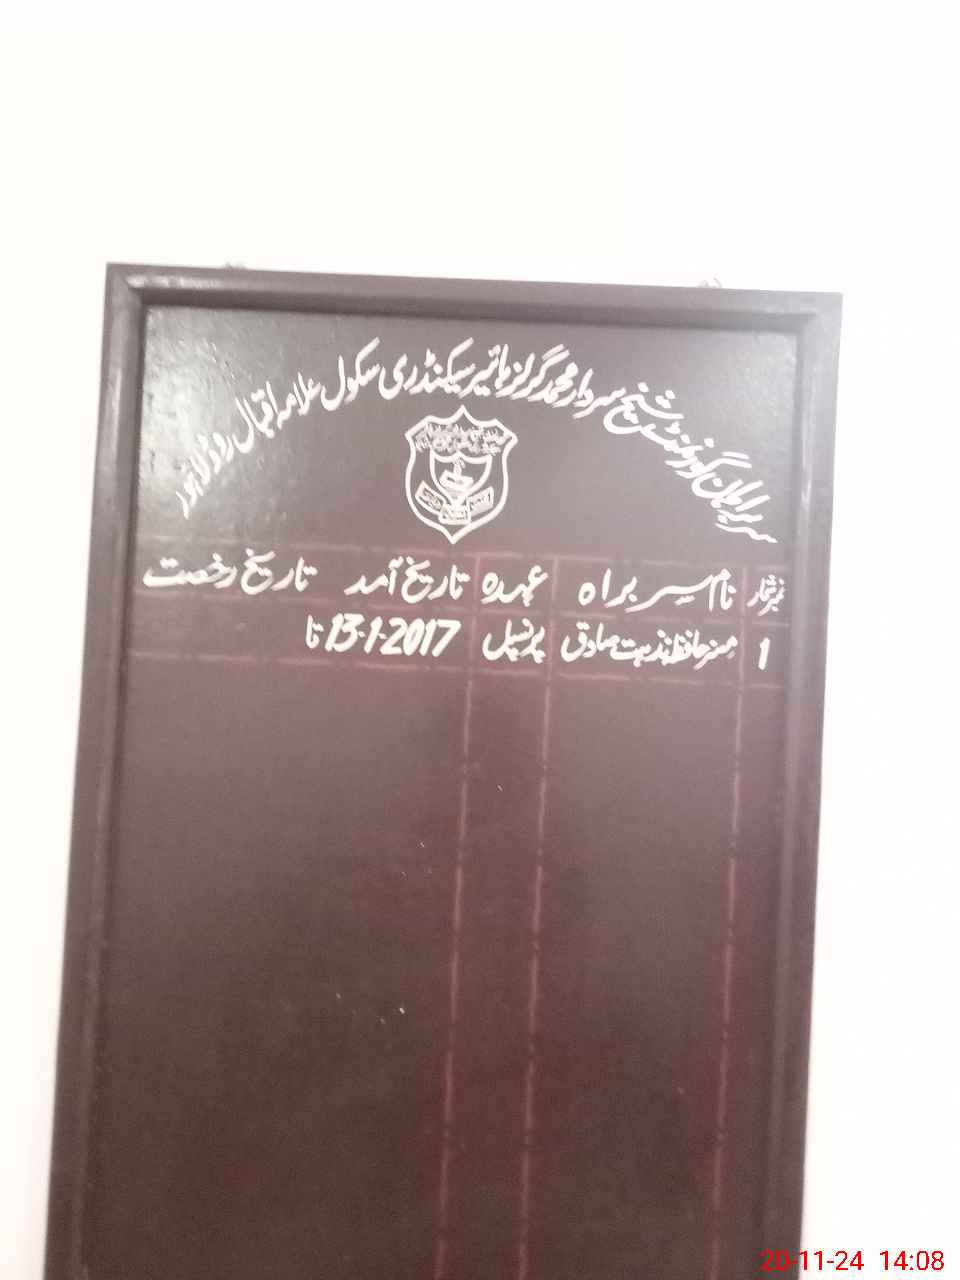 سربراہان گورنمنٹ شیخ سردار محمد گرلز ہائیر سیکنڈری سکول علامہ اقبال روڈ لاہور
نمبر شمار نام سربراہ عہدہ تاریخ آمد تاریخ رخصت
1 مسز حافظ ندہت صادق پرنسپل 13-1-2017 تا
20-11-24 14:08